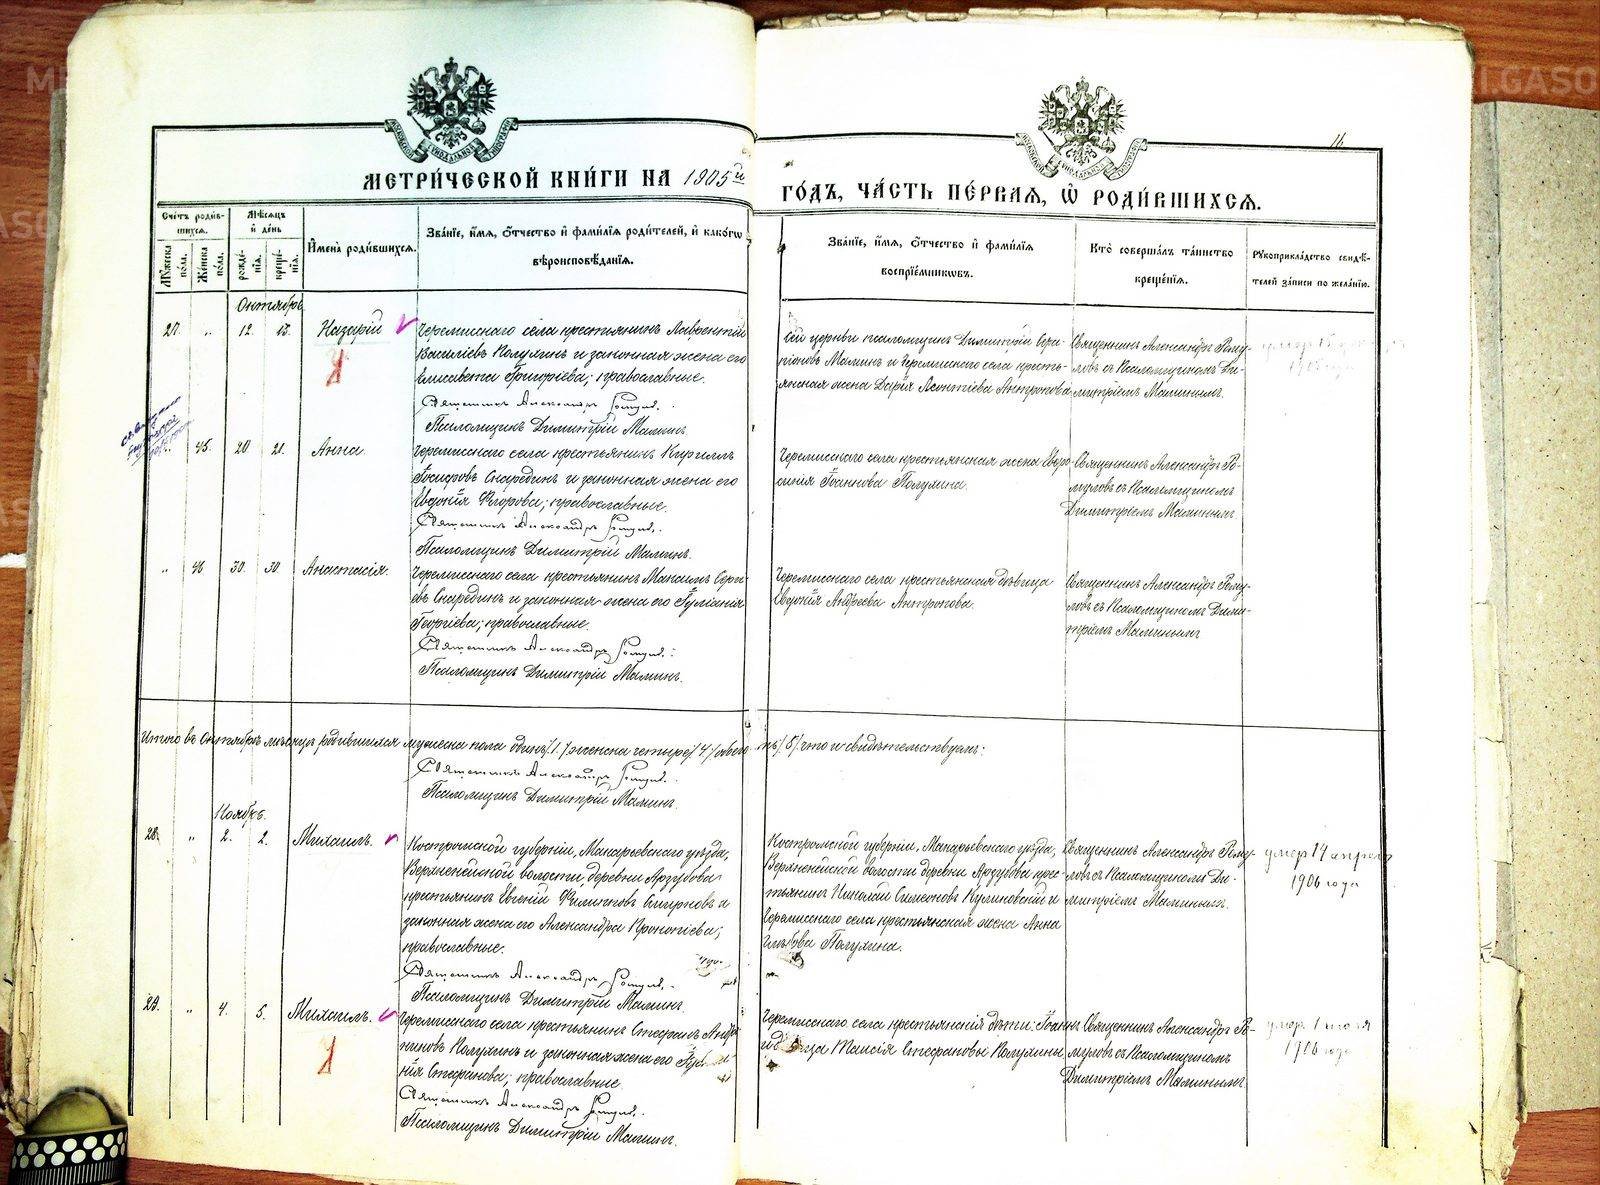 16
МЕТРИЧЕСКОЙ КНИГИ НА 1905й
ГОДЪ, ЧАСТЬ ПЕРВАЯ, Ѡ РОДИВШИХСЯ.
Счетъ родив-
шихся.
Мужеска пола.
Женска пола.
Мѣсяцъ
и день
рожде-
нія.
креще-
нія.
Имена родившихся.
Званіе, имя, отчество и фамилія родителей, и какогѡ
вѣроисповѣданія.
Званіе, имя, отчество и фамилія
воспріемникѡвъ.
Кто совершалъ таинство
крещенія.
Рукоприкладство свидѣ-
телей записи по желанію.
Октябрь
27. " 12. 13. Назарій
Черемисскаго села крестьянинъ Лаврентій
Василіевъ Полухинъ и законная жена его
Елисавета Григоріева; православные.
Священникъ Александръ
Псаломщикъ Димитрій Маминъ.
Сей церкви псаломщикъ Димитрій Сера-
піоновъ Маминъ и Черемисскаго села кресть-
янская жена Дарія Леонтіева Антропова
Священникъ Александръ Рому-
ловъ съ Псаломщикомъ Ди-
митріемъ Маминымъ.
" 45. 20 21. Анна.
Черемисскаго села крестьянинъ Кириллъ
Снарединъ и законная жена его
Евдокія Флорова; православные.
Священникъ Александръ
Псаломщикъ Димитрій Маминъ.
Черемисскаго села крестьянская жена Евро-
синія Іоаннова Полухина.
Священникъ Александръ Ро-
муловъ съ Псаломщикомъ
Димитріемъ Маминымъ
" 46 30. 30. Анастасія.
Черемисскаго села крестьянинъ Максимъ Серги-
евъ Снарединъ и законная жена его Іуліанія
Георгіева; православные.
Священникъ Александръ
Псаломщикъ Димитрій Маминъ.
Черемисскаго села крестьянская дѣвица
Евдокія Андреева Антропова.
Священникъ Александръ Рому-
ловъ съ Псаломщикомъ Дими-
тріемъ Маминымъ
Итого въ Октябрѣ мѣсяцѣ родившихся мужеска пола одинъ /1./ женска четыре /4./ обоего пять /5/ что и свидѣтельствуемъ:
Священникъ Александръ
Псаломщикъ Димитрій Маминъ.
Ноябрь.
28. " 2. 2. Михаилъ.
Костромской губерніи, Макарьевскаго уѣзда,
волости, деревни
крестьянинъ Евгеній Филиповъ Смирновъ и
законная жена его Александра
православные.
Священникъ Александръ
Псаломщикъ Димитрій Маминъ
Костромской губерніи, Макарьевскаго уѣзда,
волости деревни крес-
тьянинъ Николай Симеоновъ Куликовскій и
Черемисскаго села крестьянская жена Анна
Глѣбова Полухина.
Священникъ Александръ Рому-
ловъ съ Псаломщикомъ Ди-
митріемъ Маминымъ.
умер 14 апреля
1906 года
29. " 4. 5. Михаилъ.
Черемисскаго села крестьянинъ Стефанъ
Полухинъ и законная жена его
Стефанова; православные.
Священникъ Александръ
Псаломщикъ Димитрій Маминъ.
Черемисскаго села крестьянскія дѣти: Іоаннъ
Таисія Стефановы Полухины
Священникъ Александръ Ро-
муловъ съ Псаломщикомъ
Димитріемъ Маминымъ
умер 1
1906 года